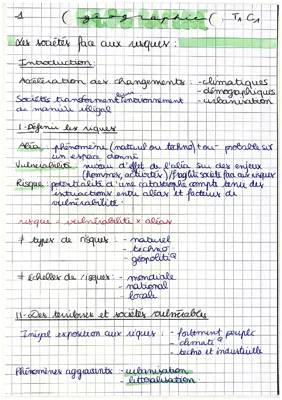 1 ( géographie ( T1 C1
Les sociétés face aux risques :
Introduction:
Accélération des changements : - climatiques
- démographiques
- urbanisation
Sociétés transforment environnement
de manière illégal
I - Définir les risques
Aléa : phénomène (naturel ou techno) + ou - probable sur
un espace donné
Vulnérabilité : niveau d'effet de l'aléa sur des enjeux
(hommes, activités) / fragilité société face aux risques
Risque : potentialité d'une catastrophe compte tenu des
interactions entre aléas et facteurs de
vulnérabilité.
risque = vulnérabilité x aléas
≠ types de risques : - naturel
- techno
- géopolitiq
≠ Echelles de risques : - mondiale
- national
- locale
II - Des territoires et sociétés vulnérables
Inégal exposition aux risques : - fortement peuplé
- climatiq
- techno et industrielle
Phénomènes aggravants - urbanisation
- littoralisation